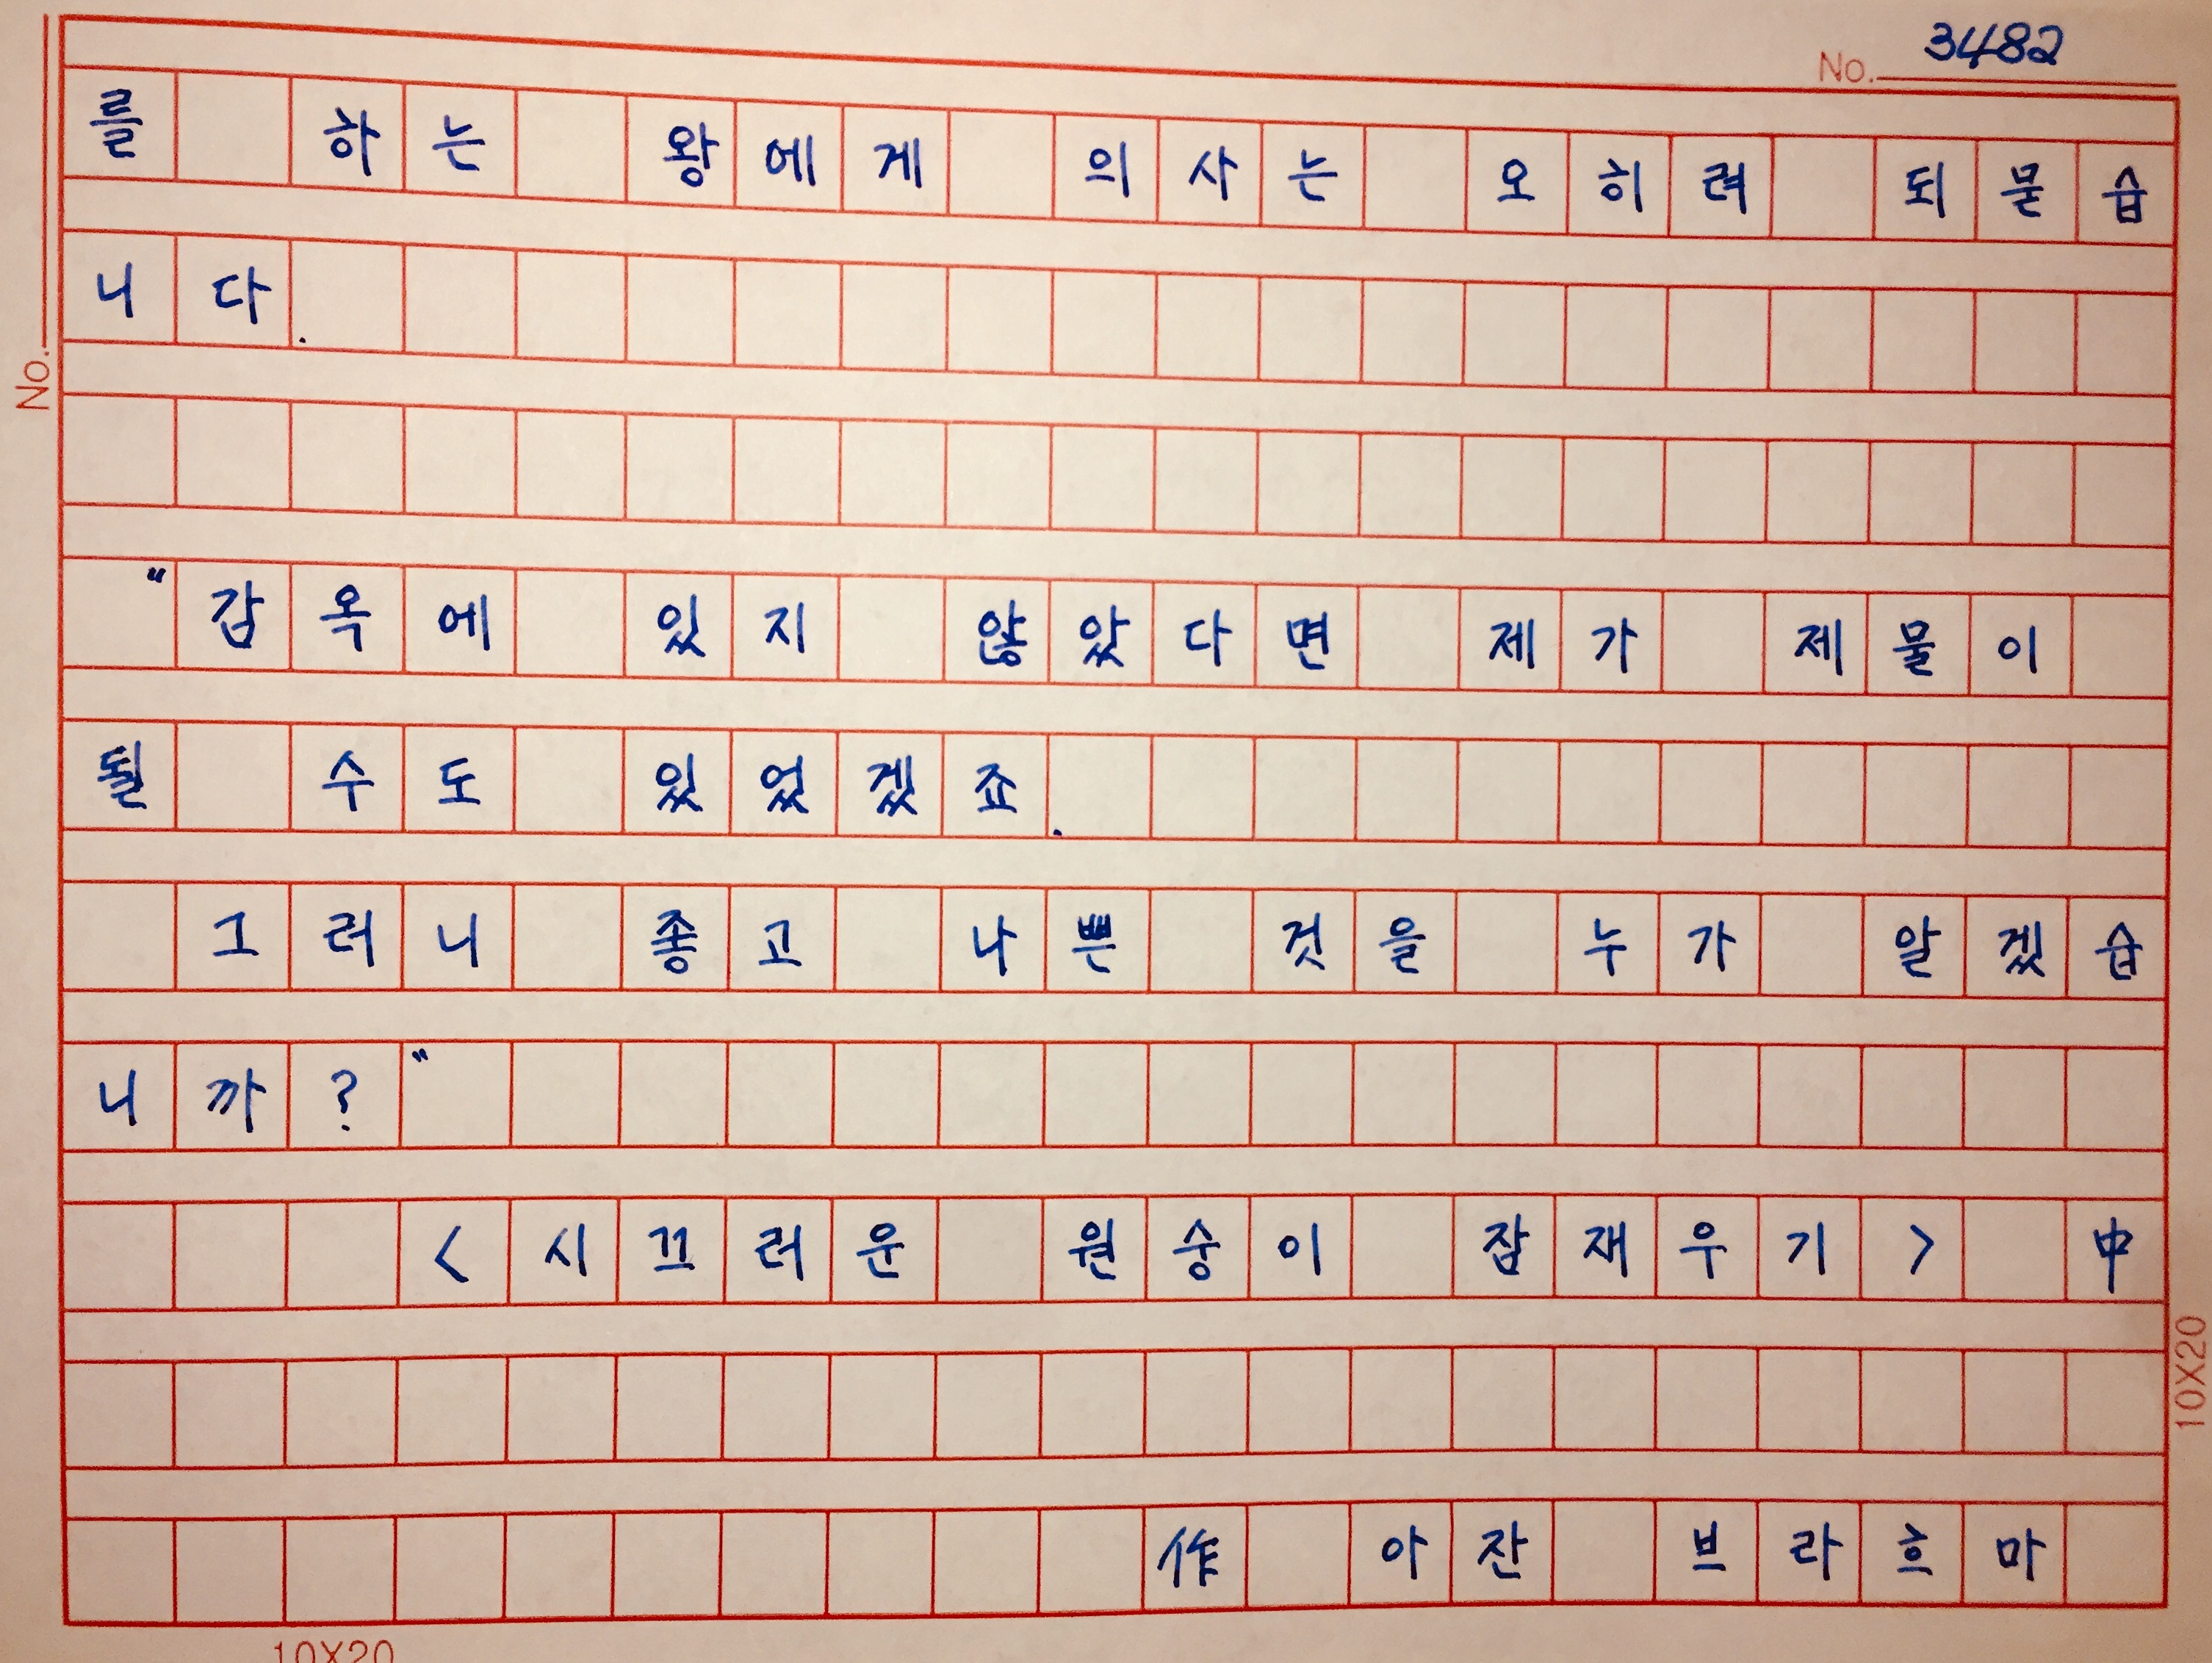 No. 3482
를 하는 왕에게 의사는 오히려 되묻습
니다.
“감옥에 있지 않았다면 제가 제물이
될 수도 있었겠죠.
그러니 좋고 나쁜 것을 누가 알겠습
니까?”
<시끄러운 원숭이 잠재우기> 中
作 아잔 브라흐마
No.
10X20
10X20